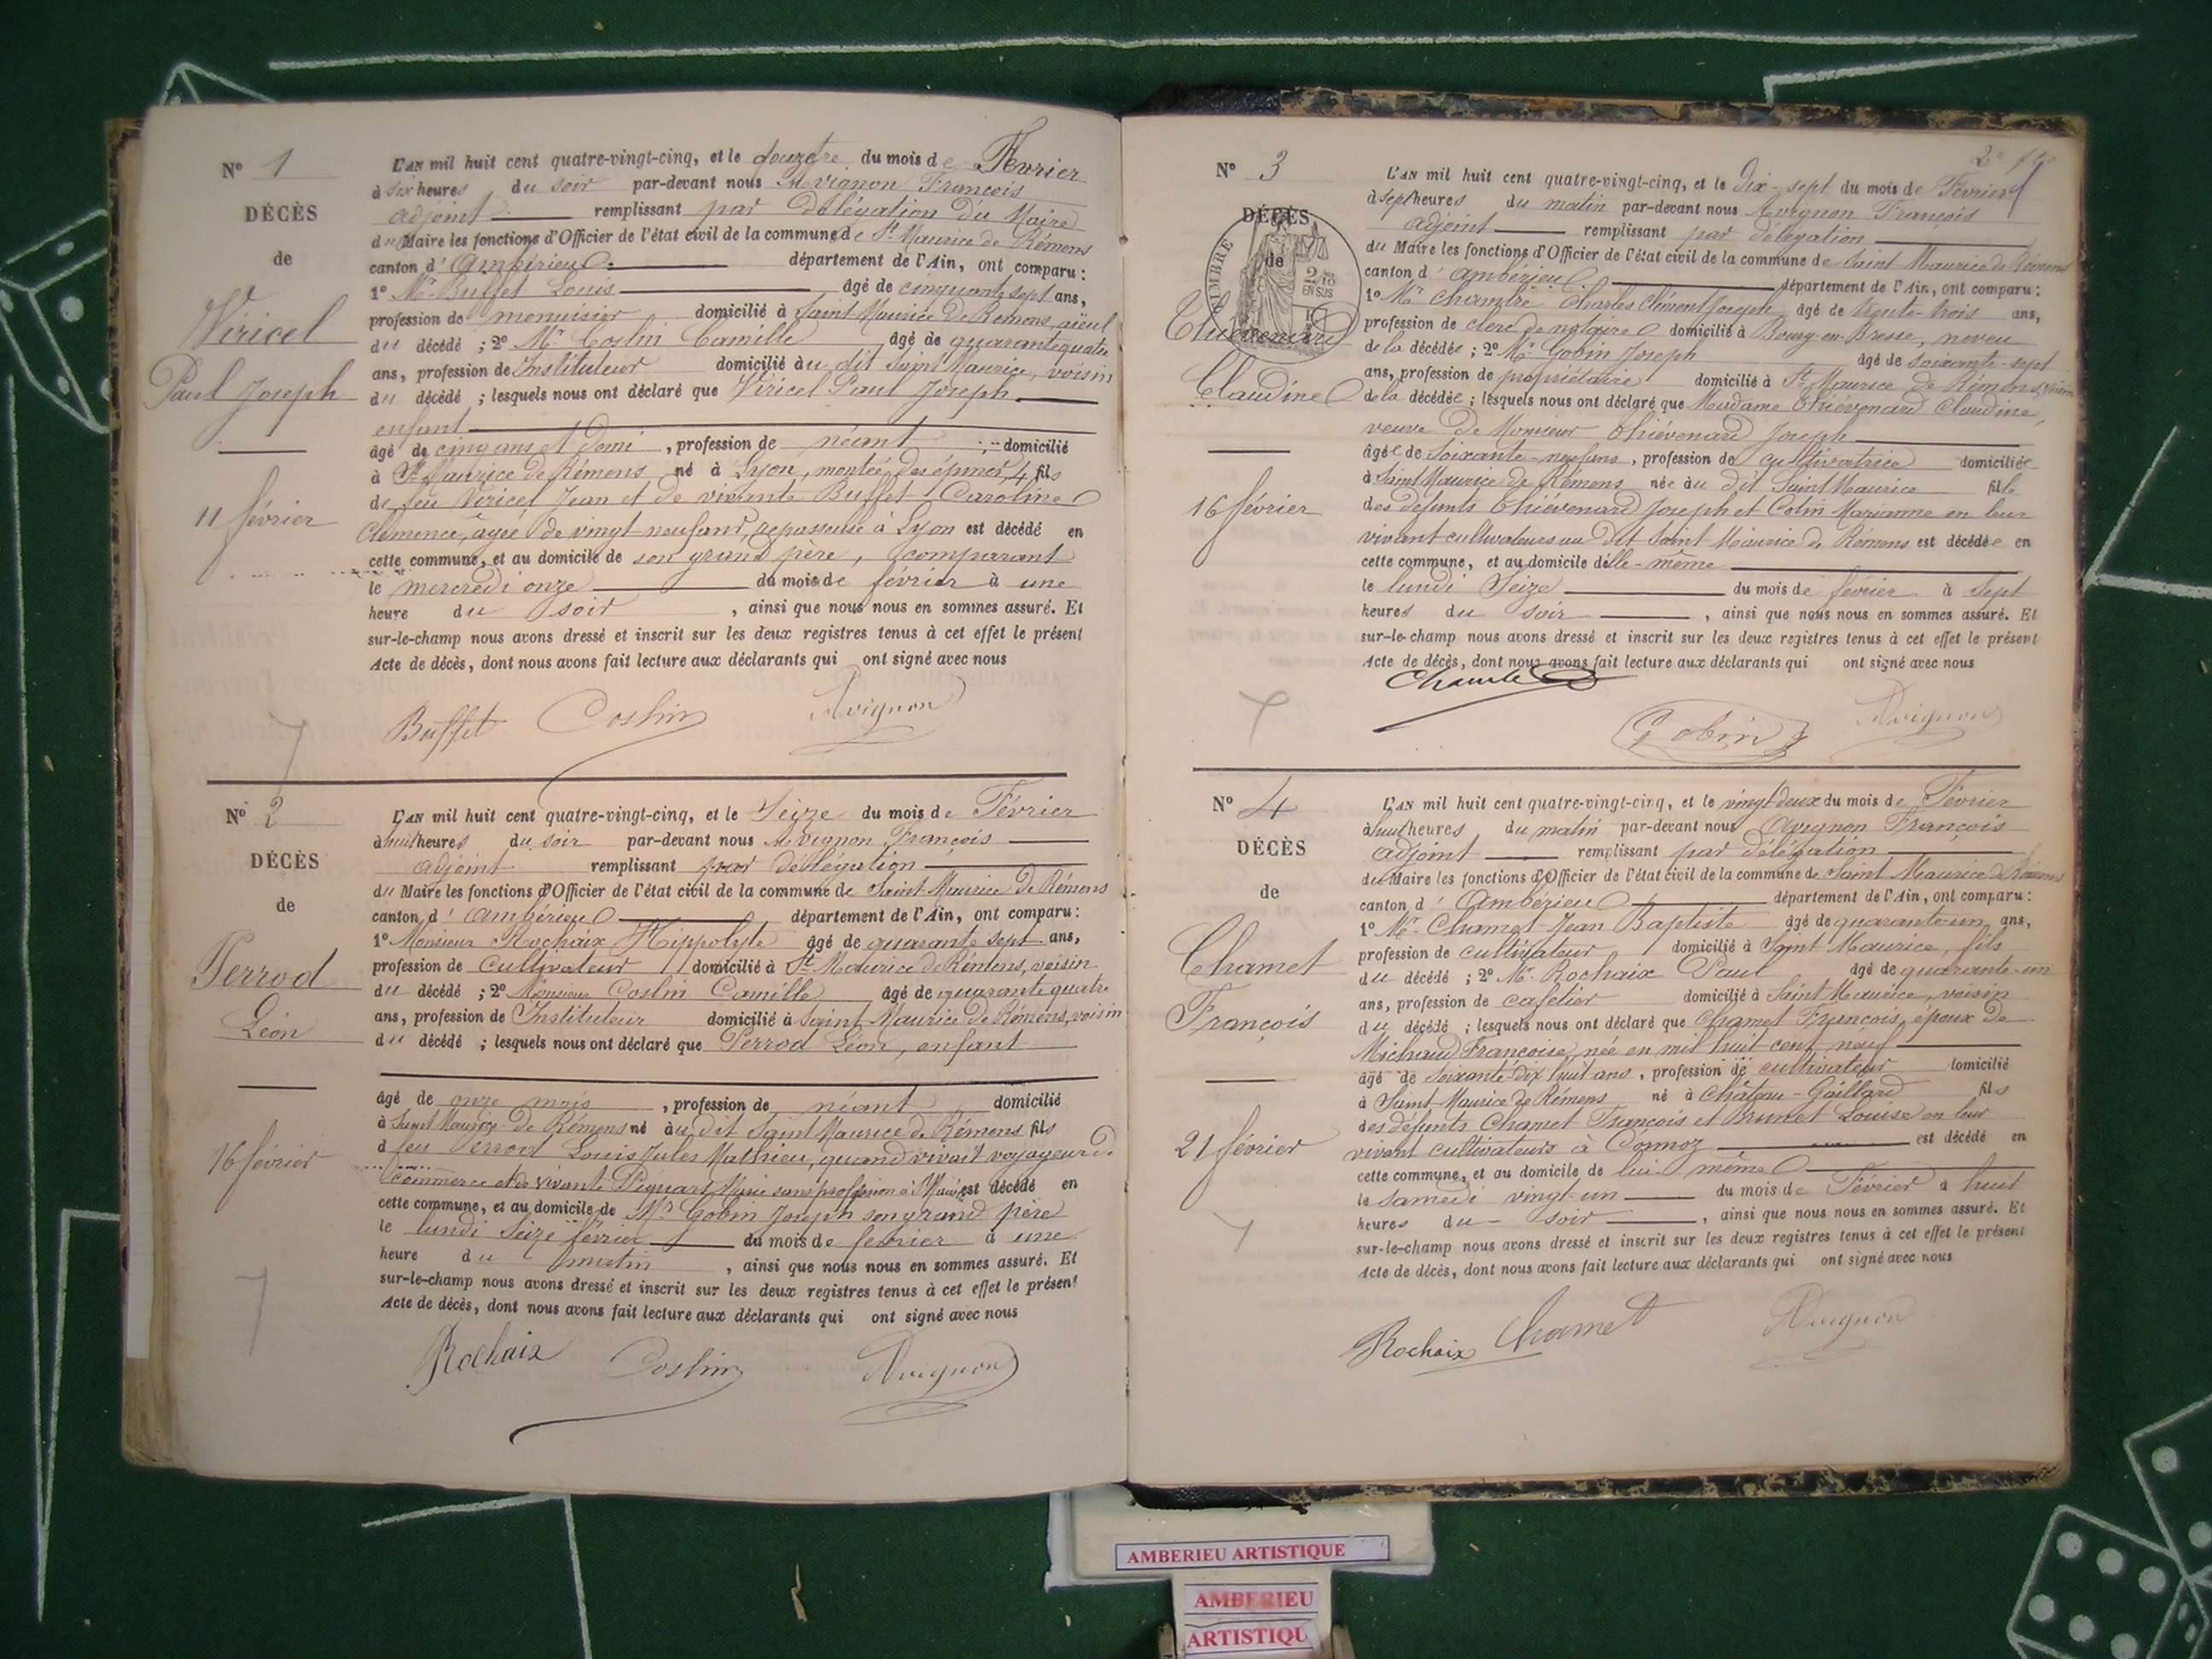 N° 1
DÉCÈS
de
Viricel
Paul Joseph
11 février
L'AN mil huit cent quatre-vingt-cinq, et le douze du mois de Février
à six heures du soir par-devant nous Avignon François
adjoint remplissant par délégation du Maire
du Maire les fonctions d'Officier de l'état civil de la commune de St Maurice de Rémens
canton d'Ambérieu département de l'Ain, ont comparu :
1° Mr Buffet Louis âgé de cinquante sept ans,
profession de menuisier domicilié à Saint Maurice de Rémens, aïeul
du décédé ; 2° Mr Coslin Camille âgé de quarante quatre
ans, profession de Instituteur domicilié au dit Saint Maurice, voisin
du décédé ; lesquels nous ont déclaré que Viricel Paul Joseph
enfant
âgé de cinq ans et demi, profession de néant domicilié
à St Maurice de Rémens né à Lyon, montée des 4 fils
de feu Viricel Jean et de vivante Buffet Caroline
Clémence, agée de vingt neuf ans, repasseuse à Lyon est décédé en
cette commune, et au domicile de son grand père, comparant
le mercredi onze du mois de février à une
heure du soir, ainsi que nous nous en sommes assuré. Et
sur-le-champ nous avons dressé et inscrit sur les deux registres tenus à cet effet le présent
Acte de décès, dont nous avons fait lecture aux déclarants qui ont signé avec nous
Buffet Coslin Avignon
N° 2
DÉCÈS
de
Perrod
Léon
16 février
L'AN mil huit cent quatre-vingt-cinq, et le Seize du mois de Février
à huit heures du soir par-devant nous Avignon François
adjoint remplissant par délégation
du Maire les fonctions d'Officier de l'état civil de la commune de Saint Maurice de Rémens
canton d'Ambérieu département de l'Ain, ont comparu :
1° Monsieur Rochaix Hippolyte âgé de quarante sept ans,
profession de cultivateur domicilié à St Maurice de Rémens, voisin
du décédé ; 2° Monsieur Coslin Camille âgé de quarante quatre
ans, profession de Instituteur domicilié à Saint Maurice de Rémens, voisin
du décédé ; lesquels nous ont déclaré que Perrod Léon, enfant
âgé de onze mois, profession de néant domicilié
à Saint Maurice de Rémens né au dit Saint Maurice de Rémens fils
d feu Perrod Louis Jules Mathieu, quand vivait voyageur de
commerce et de vivante Marie sans profession à est décédé en
cette commune, et au domicile de Mr Gobin Joseph son grand père
le lundi Seize février du mois de février à une
heure du matin, ainsi que nous nous en sommes assuré. Et
sur-le-champ nous avons dressé et inscrit sur les deux registres tenus à cet effet le présent
Acte de décès, dont nous avons fait lecture aux déclarants qui ont signé avec nous
Rochaix Coslin Avignon
N° 3
DÉCÈS
de
TIMBRE
2/10
EN SUS
Thiévenard
Claudine
16 février
L'AN mil huit cent quatre-vingt-cinq, et le Dix-sept du mois de Février
à sept heures du matin par-devant nous Avignon François
adjoint remplissant par délégation
du Maire les fonctions d'Officier de l'état civil de la commune de Saint Maurice de Rémens
canton d'Ambérieu département de l'Ain, ont comparu :
1° Mr Charles Clément Joseph âgé de trente-trois ans,
profession de clerc de notaire domicilié à Bourg-en-Bresse, neveu
de la décédée ; 2° Mr Gobin Joseph âgé de soixante-sept
ans, profession de propriétaire domicilié à St Maurice de Rémens, voisin
de la décédée ; lesquels nous ont déclaré que Madame Thiévenard Claudine,
veuve de Monsieur Thiévenard Joseph
âgée de soixante-neuf ans, profession de cultivatrice domiciliée
à Saint Maurice de Rémens née au dit Saint Maurice fille
des défunts Thiévenard Joseph et Colin Marianne en leur
vivant cultivateurs au dit Saint Maurice de Rémens est décédée en
cette commune, et au domicile d'elle-même
le lundi Seize du mois de février à sept
heures du soir, ainsi que nous nous en sommes assuré. Et
sur-le-champ nous avons dressé et inscrit sur les deux registres tenus à cet effet le présent
Acte de décès, dont nous avons fait lecture aux déclarants qui ont signé avec nous
Gobin Avignon
N° 4
DÉCÈS
de
Chamet
François
21 février
L'AN mil huit cent quatre-vingt-cinq, et le vingt deux du mois de Février
à huit heures du matin par-devant nous Avignon François
adjoint remplissant par délégation
du Maire les fonctions d'Officier de l'état civil de la commune de Saint Maurice de Rémens
canton d'Ambérieu département de l'Ain, ont comparu :
1° Mr Chamet Jean Baptiste âgé de quarante un ans,
profession de cultivateur domicilié à Saint Maurice, fils
du décédé ; 2° Mr Rochaix Paul âgé de quarante-un
ans, profession de cafetier domicilié à Saint Maurice, voisin
du décédé ; lesquels nous ont déclaré que Chamet François, époux de
Michaud Françoise, née en mil huit cent neuf
âgé de soixante-dix huit ans, profession de cultivateur domicilié
à Saint Maurice de Rémens né à Château-Gaillard fils
des défunts Chamet François et Brunet Louise en leur
vivant cultivateurs à Cormoz est décédé en
cette commune, et au domicile de lui-même
le samedi vingt-un du mois de Février à huit
heures du soir, ainsi que nous nous en sommes assuré. Et
sur-le-champ nous avons dressé et inscrit sur les deux registres tenus à cet effet le présent
Acte de décès, dont nous avons fait lecture aux déclarants qui ont signé avec nous
Rochaix Chamet Avignon
AMBERIEU ARTISTIQUE
AMBERIEU
ARTISTIQU